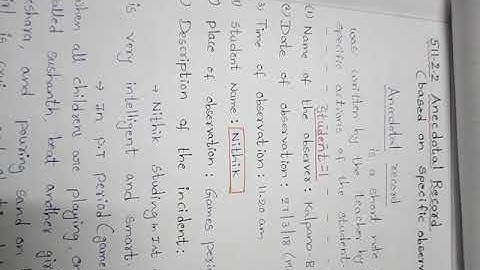 5.11.2.2 Anecdotal Record
(based on specific observ
Anecdotal record
is a short note
was written by the teacher by
specific actions of the student
Student-1
(1) Name of the observer: Kalpana. B
(2) Date of observation: 27/3/18
3) Time of observation: 11.20 am
Student Name: Nithik
) place of observation: Games peri
) Description of the incident:
→ Nithik studing in Ist
is very intelligent and smart.
→ In P.T period (game
when all children are playing on
called sushanth beat another gir
and pouring sand on